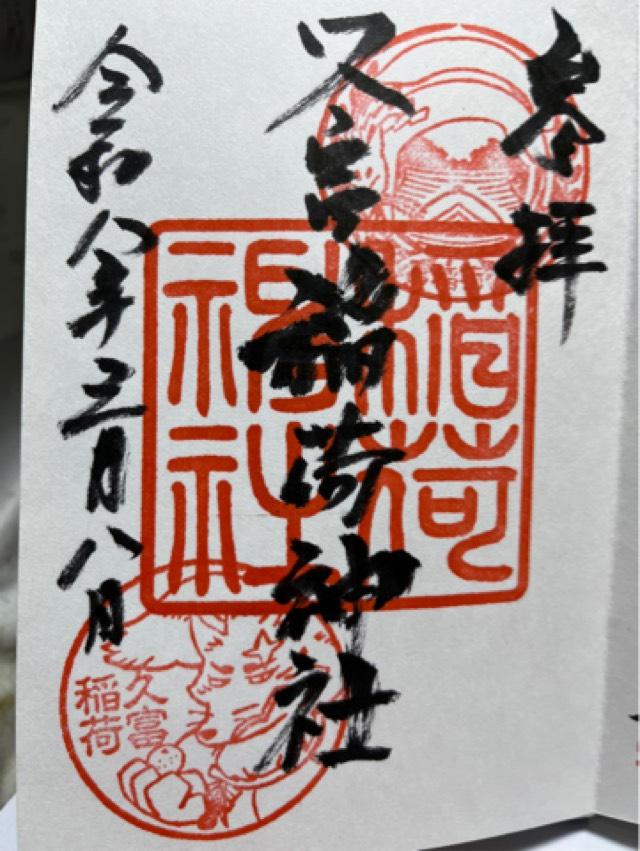 奉拝
久富稲荷神社
令和八年三月八日
稲荷
神社
久富
稲荷